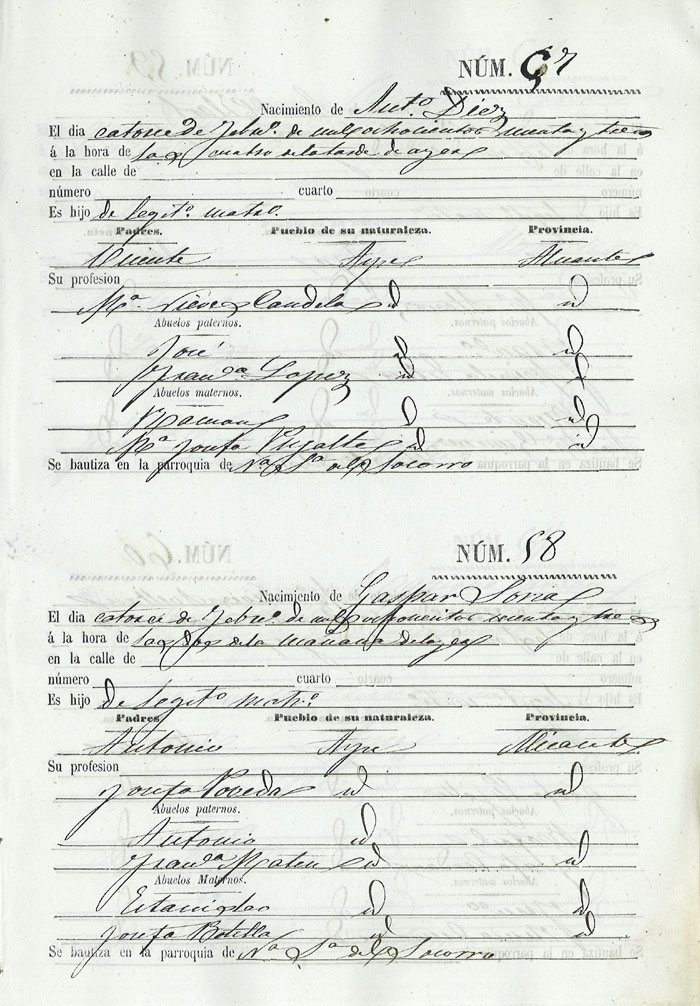 NÚM. 57
Nacimiento de Antº Diez
El dia catorce de Febrº de mil ochocientos y tres
á la hora de las cuatro de la tarde de ayer
en la calle de
número cuarto
Es hijo de legitº matº.
Padres. Pueblo de su naturaleza. Provincia.
Vicente Aspe Alicante
Su profesion
Mª Nieves Candela id id
Abuelos paternos.
José id id
Franca Lopez id id
Abuelos maternos.
Ramon id id
Mª Josefa id id
Se bautiza en la parroquia de Nª Sª del Socorro
NÚM. 58
Nacimiento de Gaspar Soria
El dia catorce de Febrº de mil ochocientos y tres
á la hora de las dos de la mañana de ayer
en la calle de
número cuarto
Es hijo de legitº matº
Padres Pueblo de su naturaleza. Provincia.
Antonio Aspe Alicante
Su profesion
Josefa Poveda id id
Abuelos paternos.
Antonio id
Franca Mateu id id
Abuelos Maternos.
Estanislao id id
Josefa Botella id id
Se bautiza en la parroquia de Nª Sª del Socorro